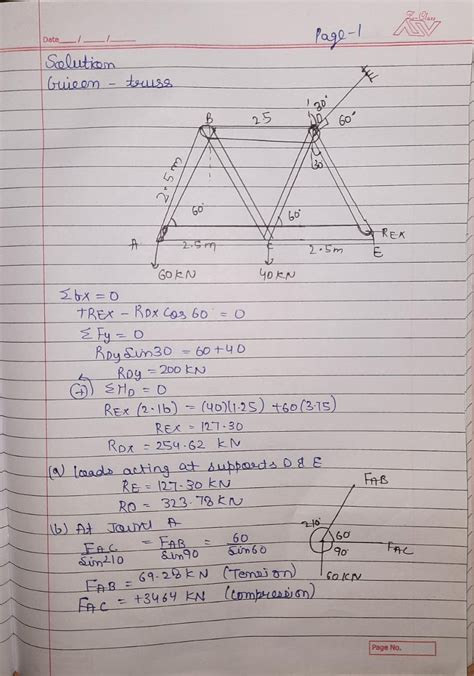 Date___/___/___
Page-1
Solution
Guieen - truss
B
25
30°
60°
2.5m
30
60°
60°
REX
A
2.5m
2.5m
E
60KN
40KN
Σbx = 0
+REX - RDX Cos 60 = 0
ΣFy = 0
RDy Sin30 = 60+40
RDy = 200 KN
(+) ΣMD = 0
REX (2.16) = (40)(1.25) +60(3.75)
REX = 127.30
RDX = 254.62 KN
(a) loads acting at supports D & E
RE = 127.30 KN
RD = 323.78 KN
(b) At Joint A
FAC/Sin210 = FAB/Sin90 = 60/Sin60
FAB = 69.28KN (Tension)
FAC = +3464 KN (compression)
FAB
210°
60°
90°
FAC
60KN
Page No.